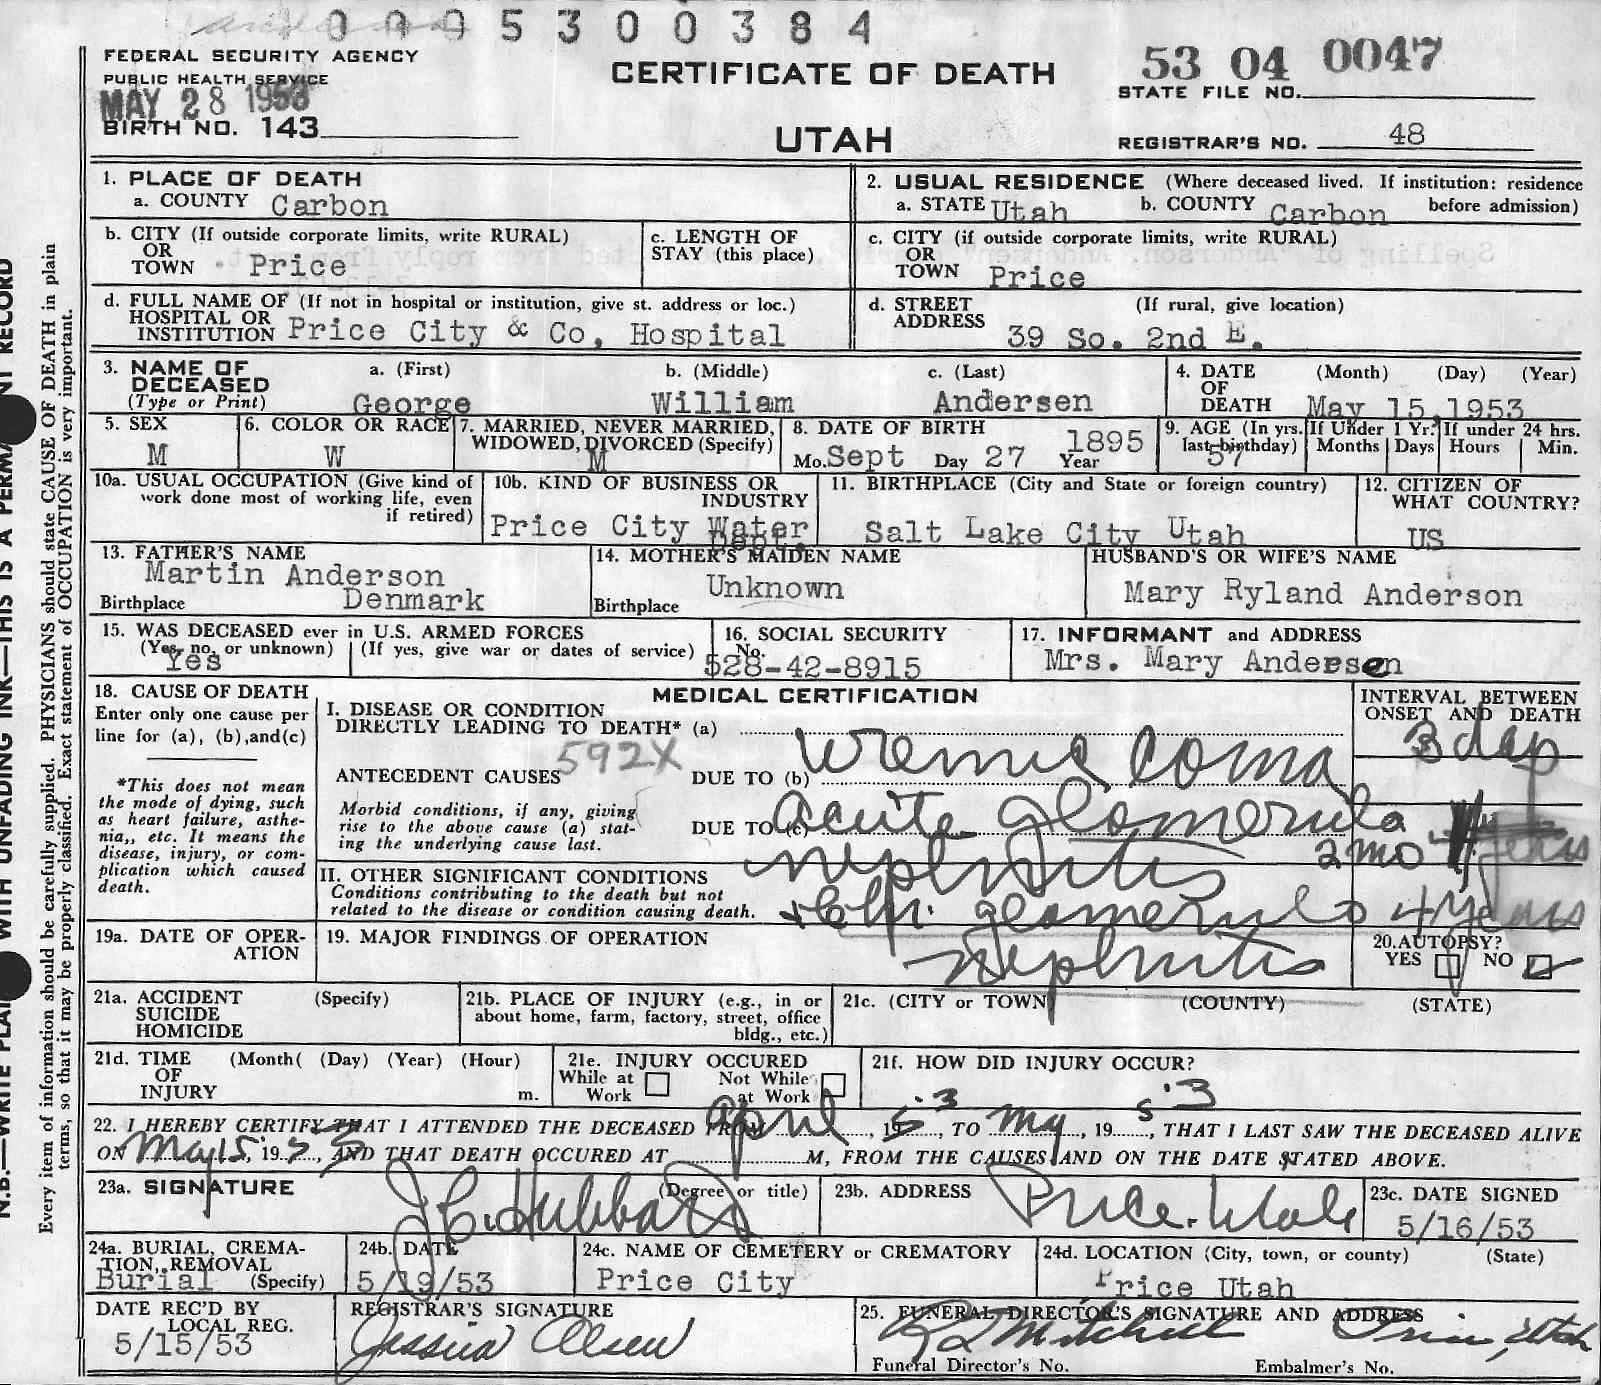 0005300384
FEDERAL SECURITY AGENCY
PUBLIC HEALTH SERVICE
MAY 28 1953
BIRTH NO. 143
CERTIFICATE OF DEATH
UTAH
53 04 0047
STATE FILE NO.
REGISTRAR'S NO. 48
1. PLACE OF DEATH
a. COUNTY Carbon
2. USUAL RESIDENCE (Where deceased lived. If institution: residence
a. STATE Utah b. COUNTY Carbon before admission)
b. CITY (If outside corporate limits, write RURAL)
OR
TOWN Price
c. LENGTH OF
STAY (this place)
c. CITY (if outside corporate limits, write RURAL)
OR
TOWN Price
d. FULL NAME OF (If not in hospital or institution, give st. address or loc.)
HOSPITAL OR
INSTITUTION Price City & Co, Hospital
d. STREET (If rural, give location)
ADDRESS
39 So. 2nd E.
3. NAME OF a. (First) b. (Middle) c. (Last)
DECEASED
(Type or Print) George William Andersen
4. DATE (Month) (Day) (Year)
OF
DEATH May 15, 1953
5. SEX
M
6. COLOR OR RACE
W
7. MARRIED, NEVER MARRIED,
WIDOWED, DIVORCED (Specify)
M
8. DATE OF BIRTH 1895
Mo. Sept Day 27 Year
9. AGE (In yrs.
last birthday)
57
If Under 1 Yr.
Months Days
If under 24 hrs.
Hours Min.
10a. USUAL OCCUPATION (Give kind of
work done most of working life, even
if retired)
10b. KIND OF BUSINESS OR
INDUSTRY
Price City Water
Dept.
11. BIRTHPLACE (City and State or foreign country)
Salt Lake City Utah
12. CITIZEN OF
WHAT COUNTRY?
US
13. FATHER'S NAME
Martin Anderson
Birthplace Denmark
14. MOTHER'S MAIDEN NAME
Unknown
Birthplace
HUSBAND'S OR WIFE'S NAME
Mary Ryland Anderson
15. WAS DECEASED ever in U.S. ARMED FORCES
(Yes, no, or unknown) (If yes, give war or dates of service)
Yes
16. SOCIAL SECURITY
No.
528-42-8915
17. INFORMANT and ADDRESS
Mrs. Mary Andersen
18. CAUSE OF DEATH
Enter only one cause per
line for (a), (b), and (c)
*This does not mean
the mode of dying, such
as heart failure, asthe-
nia,, etc. It means the
disease, injury, or com-
plication which caused
death.
MEDICAL CERTIFICATION
I. DISEASE OR CONDITION
DIRECTLY LEADING TO DEATH* (a) Uremic Coma
592X
ANTECEDENT CAUSES DUE TO (b)
Morbid conditions, if any, giving
rise to the above cause (a) stat-
ing the underlying cause last.
DUE TO (c) acute glomerulo
nephritis 2 mo
II. OTHER SIGNIFICANT CONDITIONS
Conditions contributing to the death but not
related to the disease or condition causing death.
+ Chr. glomerulo 4 years
nephritis
INTERVAL BETWEEN
ONSET AND DEATH
3 day
19a. DATE OF OPER-
ATION
19. MAJOR FINDINGS OF OPERATION
20. AUTOPSY?
YES NO
21a. ACCIDENT (Specify)
SUICIDE
HOMICIDE
21b. PLACE OF INJURY (e.g., in or
about home, farm, factory, street, office
bldg., etc.)
21c. (CITY or TOWN) (COUNTY) (STATE)
21d. TIME (Month( (Day) (Year) (Hour)
OF
INJURY m.
21e. INJURY OCCURED
While at Not While
Work at Work
21f. HOW DID INJURY OCCUR?
22. I HEREBY CERTIFY THAT I ATTENDED THE DECEASED FROM April, 1953, TO May, 1953, THAT I LAST SAW THE DECEASED ALIVE
ON May 15, 1953, AND THAT DEATH OCCURED AT M, FROM THE CAUSES AND ON THE DATE STATED ABOVE.
23a. SIGNATURE (Degree or title)
J C. Hubbard
23b. ADDRESS
Price. Utah
23c. DATE SIGNED
5/16/53
24a. BURIAL, CREMA-
TION, REMOVAL
Burial (Specify)
24b. DATE
5/19/53
24c. NAME OF CEMETERY or CREMATORY
Price City
24d. LOCATION (City, town, or county) (State)
Price Utah
DATE REC'D BY
LOCAL REG.
5/15/53
REGISTRAR'S SIGNATURE
Jessica Olsen
25. FUNERAL DIRECTOR'S SIGNATURE AND ADDRESS
Mitchell Price, Utah
Funeral Director's No. Embalmer's No.
Every item of information should be carefully supplied. PHYSICIANS should state CAUSE OF DEATH in plain
terms, so that it may be properly classified. Exact statement of OCCUPATION is very important.